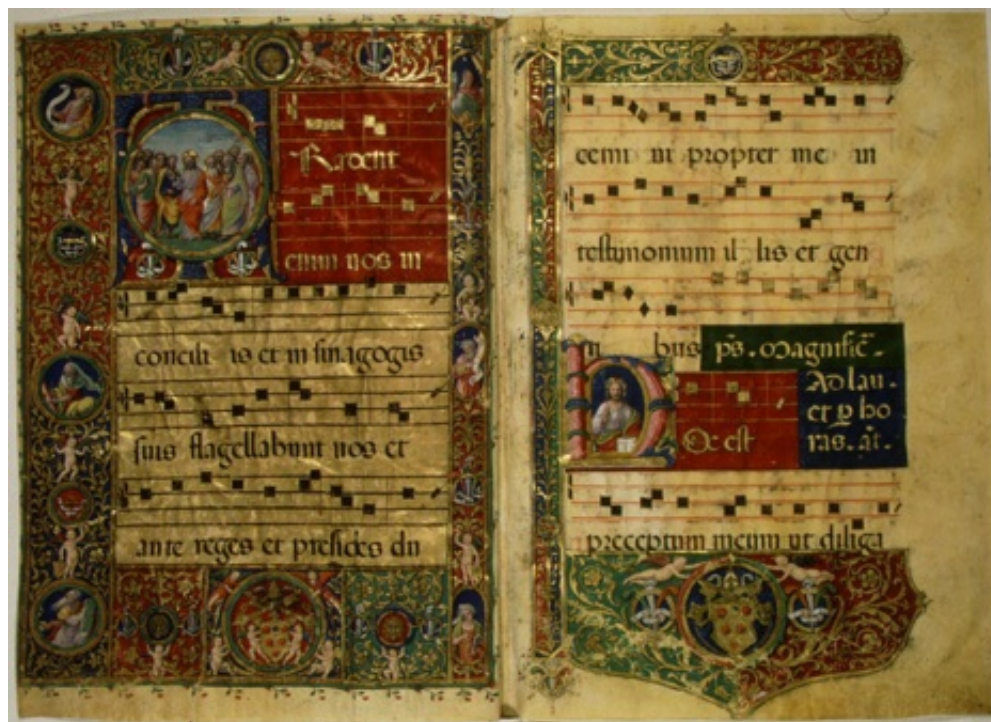 Radent
enim uos in
concili is et in sinagogis
suis flagellabunt uos et
ante reges et presides du
cemi ni propter me in
testimonium il lis et gen
ti bus ps. Magnific̄.
Oc est
Ad lau.
et p ho
ras. an̄.
preceptum meum ut diliga